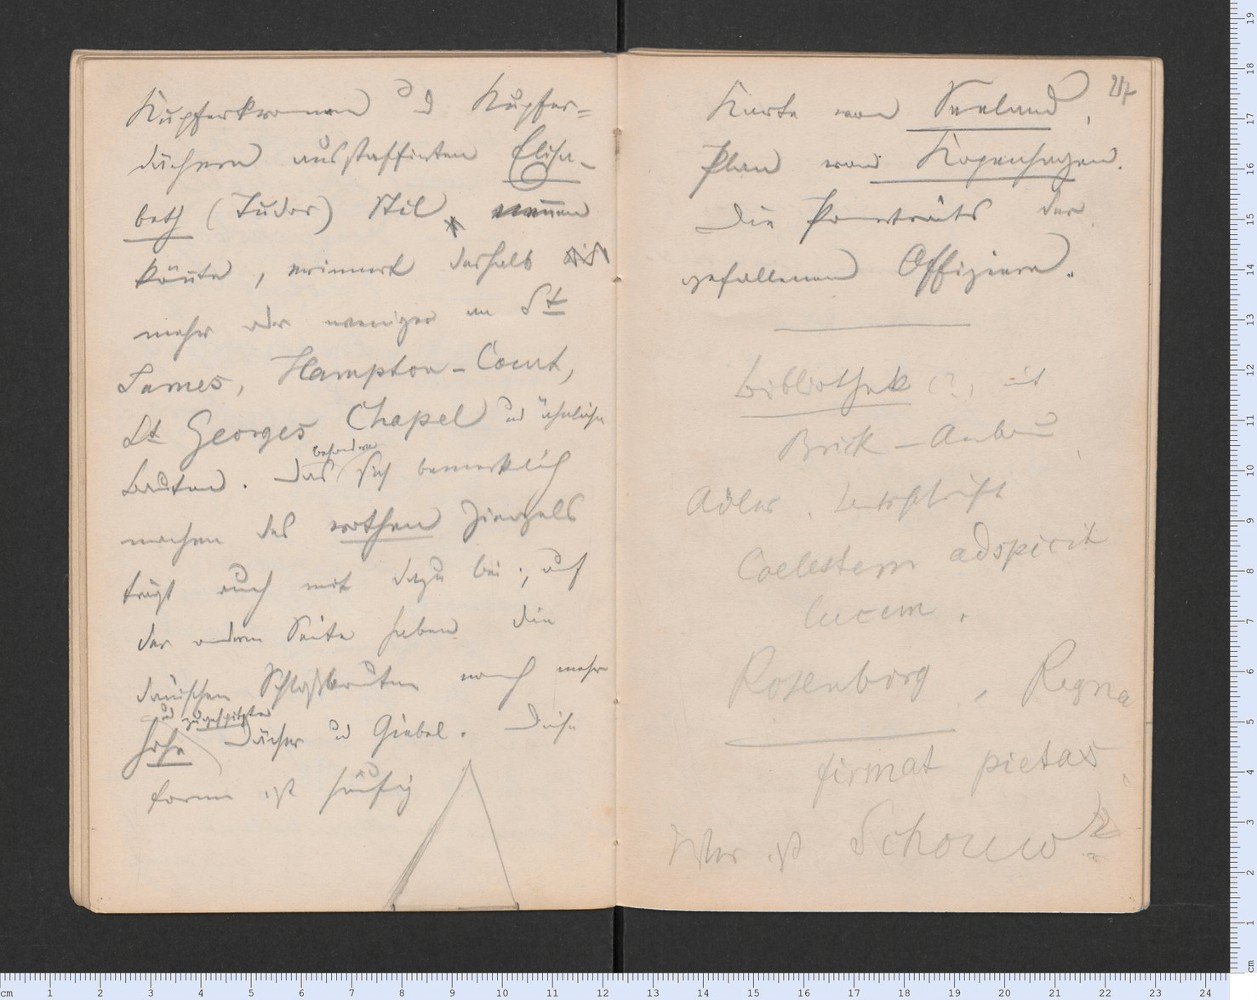 Kupferkronen u Kupfer=
dächern ausstaffirten Elisa-
beth (Tudor) Stil nennen
könnte, erinnert deshalb
mehr oder weniger an St
James, Hampton-Court,
St Georges Chapel und ähnliche
Bauten. Das besondre sich bemerklich
machen des rothen Ziegels
trägt auch mit dazu bei; auf
der andren Seite haben die
dänischen Schloßbauten noch mehr
hohe und zugespitzte Dächer und Giebel. Diese
Form ist häufig
27
Karte von Seeland,
Plan von Kopenhagen.
Die Portraits der
gefallenen Offiziere.
Bibliothek (?) mit
Brick-Anbau
Adler. Inschrift
Coelestem adspicit
lucem.
Rosenborg, Regna
firmat pietas
Wer ist Schouw?